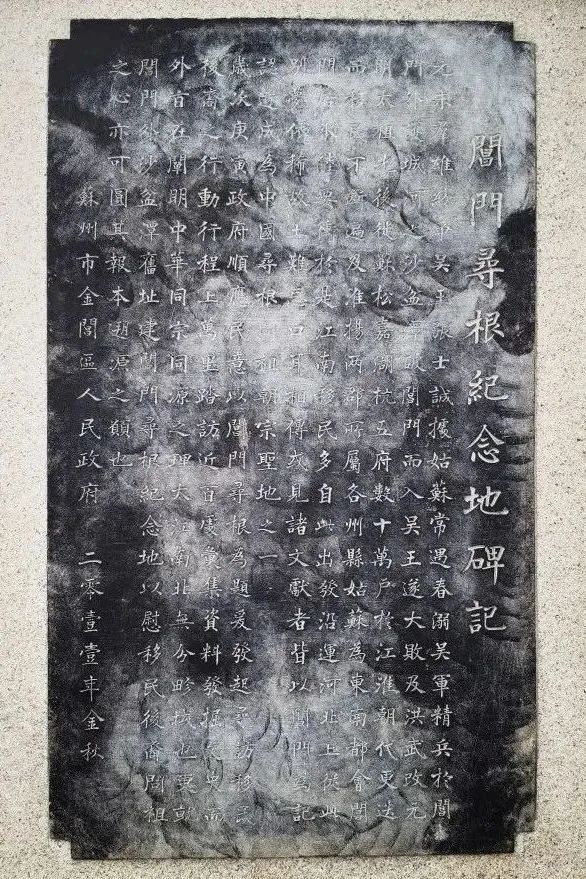 閶門尋根紀念地碑記
元末羣雄紛爭吴王張士誠據姑蘇常遇春溺吴軍精兵於閶
門外護城河之沙盆潭破閶門而入吴王遂大敗及洪武改元
明太祖先後徙蘇松嘉湖杭五府數十萬戶於江淮朝代更迭
而移民不斷遍及淮揚兩郡所屬各州縣姑蘇為東南都會閶
門為水陸要衝於是江南移民多自此出發沿運河北上從此
別蘇依稀故土難忘口耳相傳或見諸文獻者皆以閶門為記
認遂成為中國尋根 祖朝宗聖地之一
歲次庚寅政府順應民意以閶門尋根為題爰發起尋訪移民
後裔之行動行程上萬里踏訪近百處彙集資料發掘歷史而
外旨在闡明中華同宗同源之理大江南北無分畛域也冀就
閶門外沙盆潭舊址建閶門尋根紀念地以慰移民後裔問祖
之心亦可圓其報本溯源之願也
蘇州市金閶區人民政府 二零壹壹年金秋